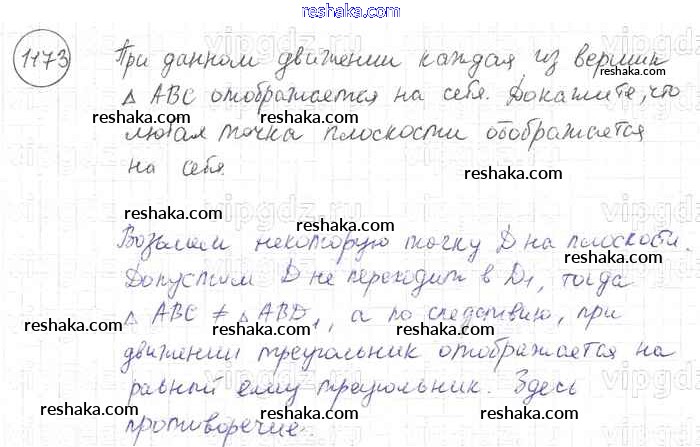 reshaka.com
1173
При данном движении каждая из вершин
reshaka.com
△ ABC отображается на себя. Докажите, что
reshaka.com
любая точка плоскости отображается
на себя.
reshaka.com
reshaka.com
reshaka.com
Возьмем некоторую точку D на плоскости.
reshaka.com
Допустим D не переходит в D₁, тогда
reshaka.com
△ ABC ≠ △ ABD₁, а по следствию, при
reshaka.com
reshaka.com
движении треугольник отображается на
равный ему треугольник. Здесь
reshaka.com
reshaka.com
противоречие.
reshaka.com